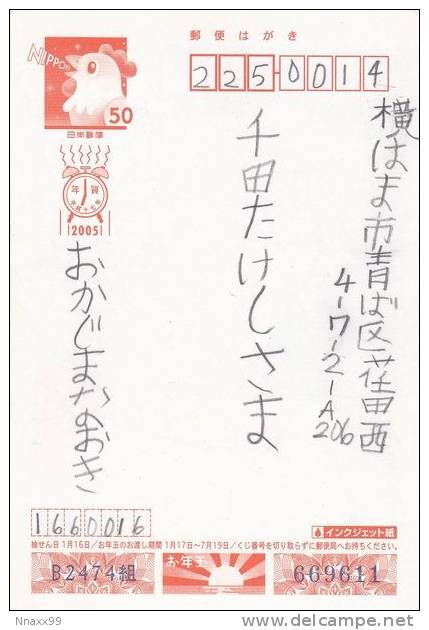 郵便はがき
NIPPON
50
日本郵便
225-0014
横はま市青ば区荏田西
4-7-2-A
206
千田たけしさま
年賀
平成十七年
2005
おかじまなおき
1660016
インクジェット紙
抽せん日 1月16日/お年玉のお渡し期間 1月17日〜7月19日/くじ番号を切り取らずに郵便局へお持ちください。
B2474組
お年玉
669611
Nnaxx99
delcampe.net